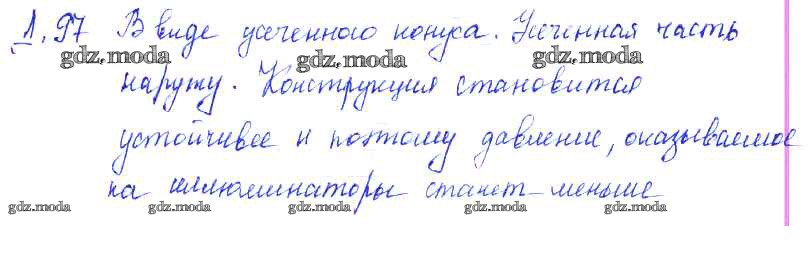 1.97 В виде усеченного конуса. Усеченная часть
gdz.moda gdz.moda gdz.moda
наружу. Конструкция становится
устойчивее и поэтому давление, оказываемое
на иллюминаторы станет меньше
gdz.moda gdz.moda gdz.moda gdz.moda gdz.moda